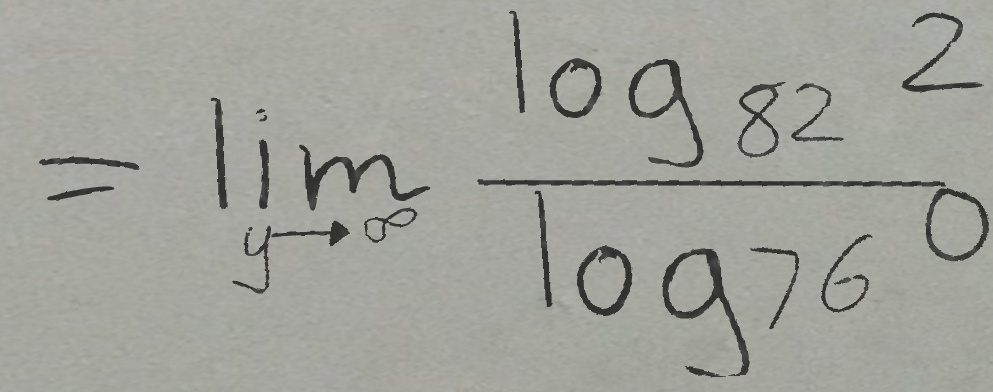 = \lim_{y \to \infty} \frac{\log_{82} 2}{\log_{76} 0}